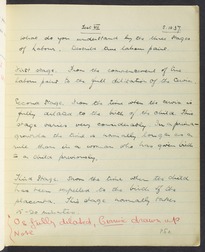 Test VII 8.10.57
What do you understand by the three stages
of Labour. Describe one labour pain
First Stage. From the commencement of true
labour pains to the full dilatation of the Cervix
Second Stage. From the time when the cervix is
fully dilated to the birth of the child. This
stage varies very considerably. In a primi-
gravida the time is normally longer
than in a woman who has given birth
to a child previously.
Third Stage. From the time when the child
has been expelled to the birth of the
placenta. This stage normally takes
15-20 minutes.
Os fully dilated, Cervix drawn up
Note